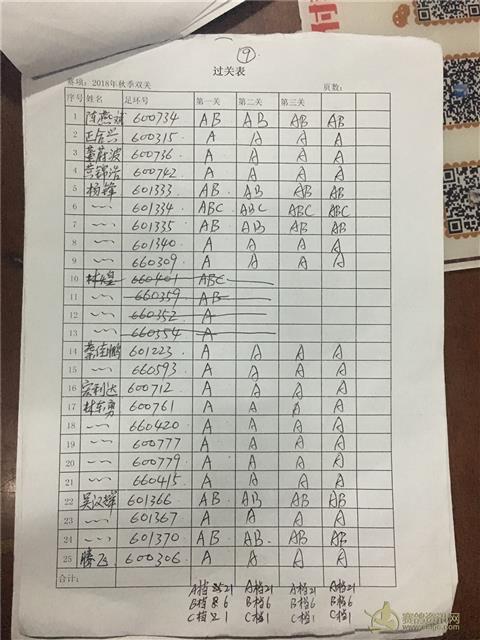 9
过关表
赛项：2018年秋季双关 页数：
序号 姓名 足环号 第一关 第二关 第三关
1 陈燕双 600734 AB AB AB AB
2 正合兴 600315 A A A A
3 董蔚波 600736 A A A A
4 黄锦浩 600742 A A A A
5 杨锋 601333 AB AB AB AB
6 〜 601334 ABC ABC ABC ABC
7 〜 601335 AB AB AB AB
8 〜 601340 A A A A
9 〜 660309 A A A A
10 林煌 660401 ABC
11 〜 660359 AB
12 〜 660352 A
13 〜 660354 A
14 蔡佳鹏 601223 A A A A
15 〜 660593 A A A A
16 宏利达 600712 A A A A
17 林东勇 600761 A A A A
18 〜 660420 A A A A
19 〜 600777 A A A A
20 〜 600779 A A A A
21 〜 660415 A A A A
22 吴汉辉 601366 AB AB AB AB
23 〜 601367 A A A A
24 〜 601370 AB AB AB AB
25 腾飞 600306 A A A A
合计：
A档 25 21 A档21 A档21 A档21
B档 8 6 B档6 B档6 B档6
C档 2 1 C档1 C档1 C档1
赛鸽资讯网